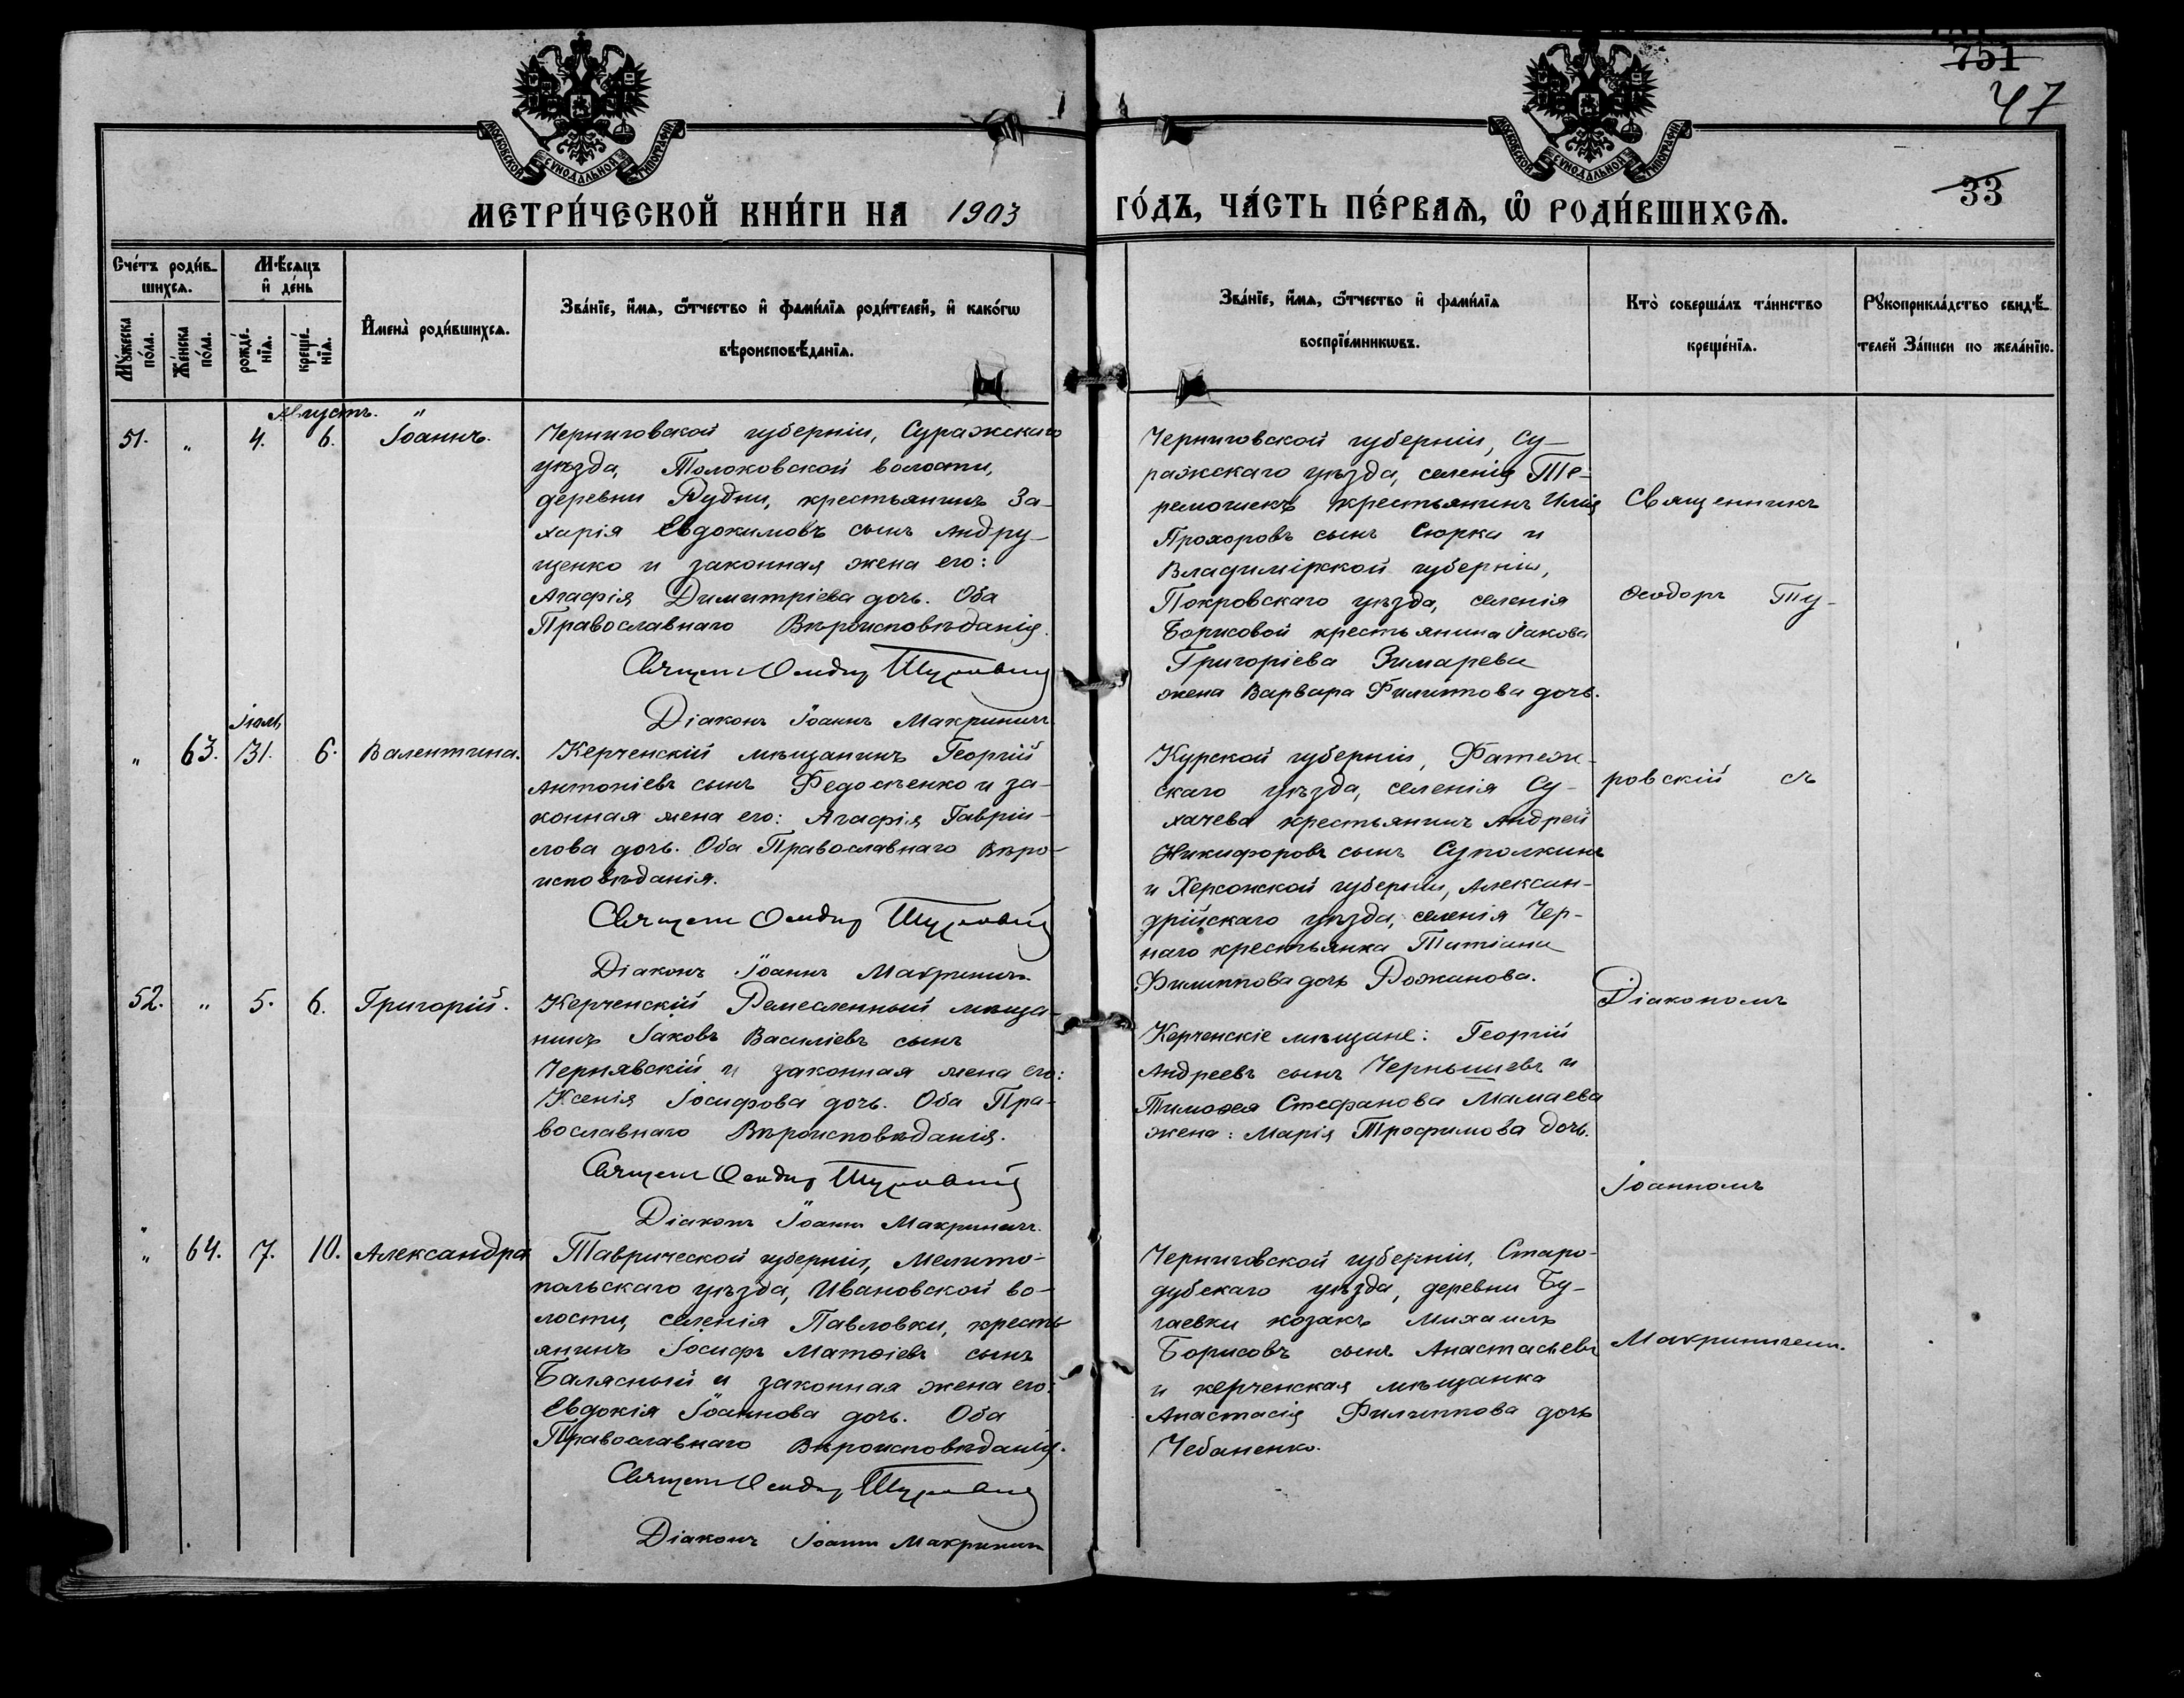 МОСКОВСКОЙ СѴНОДАЛЬНОЙ ТИПОГРАФІИ
МОСКОВСКОЙ СѴНОДАЛЬНОЙ ТИПОГРАФІИ
751
47
33
МЕТРИ́ЧЕСКОЙ КНИ́ГИ НА 1903 ГО́ДЪ, ЧА́СТЬ ПЕ́РВАѦ, Ѡ РОДИ́ВШИХСѦ.
Сче́тъ роди́в-
шихсѧ.
Мꙋ́жеска
по́ла.
Же́нска
по́ла.
Мѣ́сѧцъ
и҆ де́нь
рожде́-
нїѧ.
креще́-
нїѧ.
И҆мена̀ роди́вшихсѧ.
Зва́нїе, и҆́мѧ, ѻ҆́тчество и҆ фами́лїѧ роди́телей, и҆ како́гѡ
вѣроисповѣ́данїѧ.
Зва́нїе, и҆́мѧ, ѻ҆́тчество и҆ фами́лїѧ
воспрїе́мникѡвъ.
Кто̀ соверша́лъ та́инство
креще́нїѧ.
Рꙋкоприкла́дство свидѣ́-
телей за́писи по жела́нїю.
Августъ. "
51. " 4. 6. Іоаннъ.
Черниговской губерніи, Суражскаго
уѣзда, Толоковской волости,
деревни Рудни, крестьянинъ За-
харія Евдокимовъ сынъ Андру-
щенко и законная жена его:
Агафія Димитріева дочь. Оба
Православнаго Вѣроисповѣданія.
Священ Ѳеодор Туровскій
Діаконъ Іоаннъ Макриничъ
Черниговской губерніи, Су-
ражскаго уѣзда, селенія Те-
ремошекъ крестьянинъ Илія
Прохоровъ сынъ Сюрка и
Владимірской губерніи,
Покровскаго уѣзда, селенія
Борисовой крестьянина Іакова
Григоріева Зимарева
жена Варвара Филиппова дочь.
Священникъ
Ѳеодоръ Ту-
Іюль
" 63. 31. 6. Валентина.
Керченскій мѣщанинъ Георгій
Антоніевъ сынъ Федосѣенко и за-
конная жена его: Агафія Гаврии-
лова дочь. Оба Православнаго Вѣро-
исповѣданія.
Священ Ѳеодор Туровскій
Діаконъ Іоаннъ Макриничъ
Курской губерніи, Фатеж-
скаго уѣзда, селенія Су-
хачева крестьянинъ Андрей
Никифоровъ сынъ Суполкинъ
и Херсонской губерніи, Алексан-
дрійскаго уѣзда, селенія Чер-
наго крестьянка Татіана
Филиппова дочь Рожанова.
ровскій съ
52. " 5. 6. Григорій.
Керченскій Ремесленный мѣща-
нинъ Іаковъ Василіевъ сынъ
Чернявскій и законная жена его:
Ксенія Іосифова дочь. Оба Пра-
вославнаго Вѣроисповѣданія.
Священ Ѳеодор Туровскій
Діаконъ Іоаннъ Макриничъ.
Керченскіе мѣщане: Георгій
Андреевъ сынъ Чернышевъ и
Тимоѳея Стефанова Мамаева
жена: Марія Трофимова дочь.
Діакономъ
Іоанномъ
" 64. 7. 10. Александра
Таврической губерніи, Мелито-
польскаго уѣзда, Ивановской во-
лости, селенія Павловки, кресть-
янинъ Іосифъ Матѳіевъ сынъ
Балясный и законная жена его:
Евдокія Іоаннова дочь. Оба
Православнаго Вѣроисповѣданія.
Священ Ѳеодор Туровскій
Діаконъ Іоаннъ Макриничъ
Черниговской губерніи, Старо-
дубскаго уѣзда, деревни Бу-
гаевки козакъ Михаилъ
Борисовъ сынъ Анастасьевъ
и керченская мѣщанка
Анастасія Филиппова дочь
Чебаненко.
Макриничемъ.